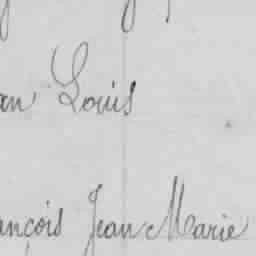 an Louis
ançois Jean Marie